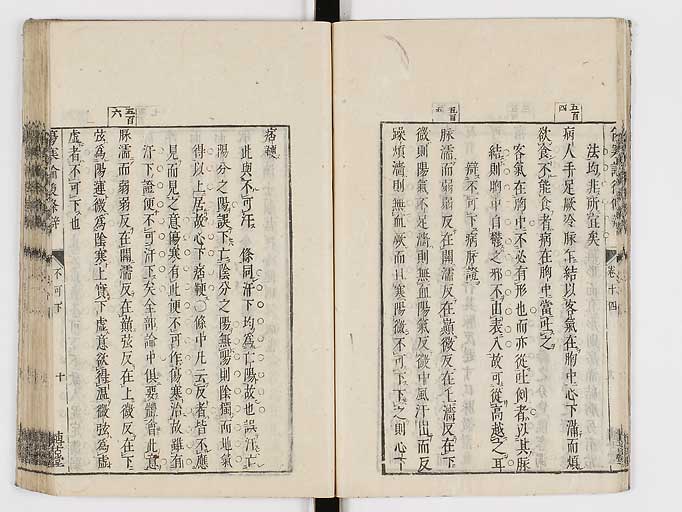 傷寒論後條辨
卷十四
法均非所宜矣
五百四
病人手足厥冷脉乍結以客氣在胸中心下滿而煩
欲食不能食者病在胸中當吐之
客氣在胸中不必有形也而亦從吐例者以其脉
結則胸中自鬱之邪不由表入故可從高越之耳
辯不可下病脉證
五百五
脉濡而弱弱反在關濡反在巔微反在上濇反在下
微則陽氣不足濇則無血陽氣反微中風汗出而反
躁煩濇則無血厥而且寒陽微不可下下之則心下
痞鞕
此與不可汗 條同汗下均為亡陽故也誤汗亡
陽分之陽誤下亡陰分之陽無陽則陰獨而地氣
得以上居故心下痞鞕○條中凡云反者皆不應
見而見之意傷寒有此便不可作傷寒治故雖有
汗下證便不可汗下矣全部論中俱要體會此意
五百六
脉濡而弱弱反在關濡反在巔弦反在上微反在下
弦為陽運微為陰寒上實下虛意欲得溫微弦為虛
虛者不可下也
傷寒論後條辨
不可下
十